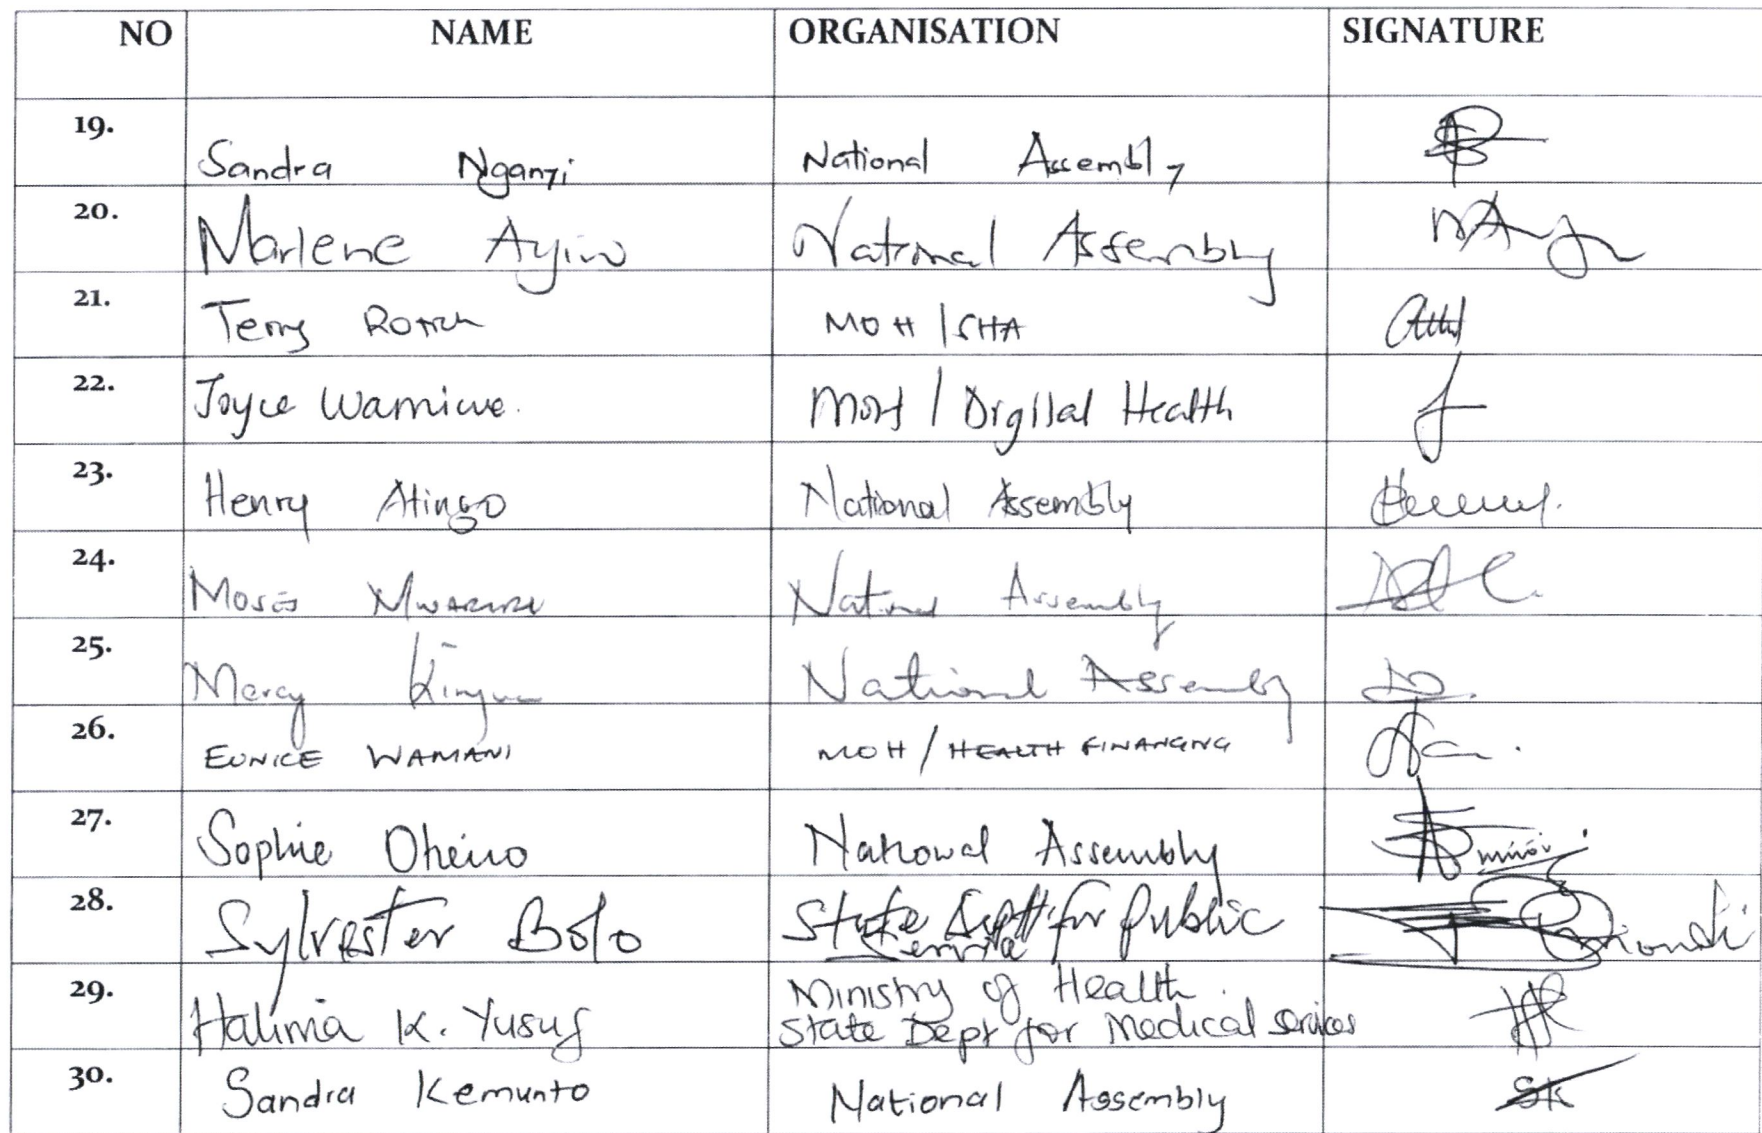 NO NAME ORGANISATION SIGNATURE
19. Sandra Nganyi National Assembly
20. Marlene Ayiro National Assembly
21. Terry MOH / SHA
22. Joyce Wamicwe. MoH / Digital Health
23. Henry Atingo National Assembly
24. Moses Mwariri National Assembly
25. Mercy Kinyua National Assembly
26. EUNICE WAMANI MOH / HEALTH FINANCING
27. Sophie Otieno National Assembly
28. Sylvester Bolo State Dept for Public
Service
29. Halima K. Yusuf Ministry of Health
State Dept for Medical services
30. Sandra Kemunto National Assembly SK